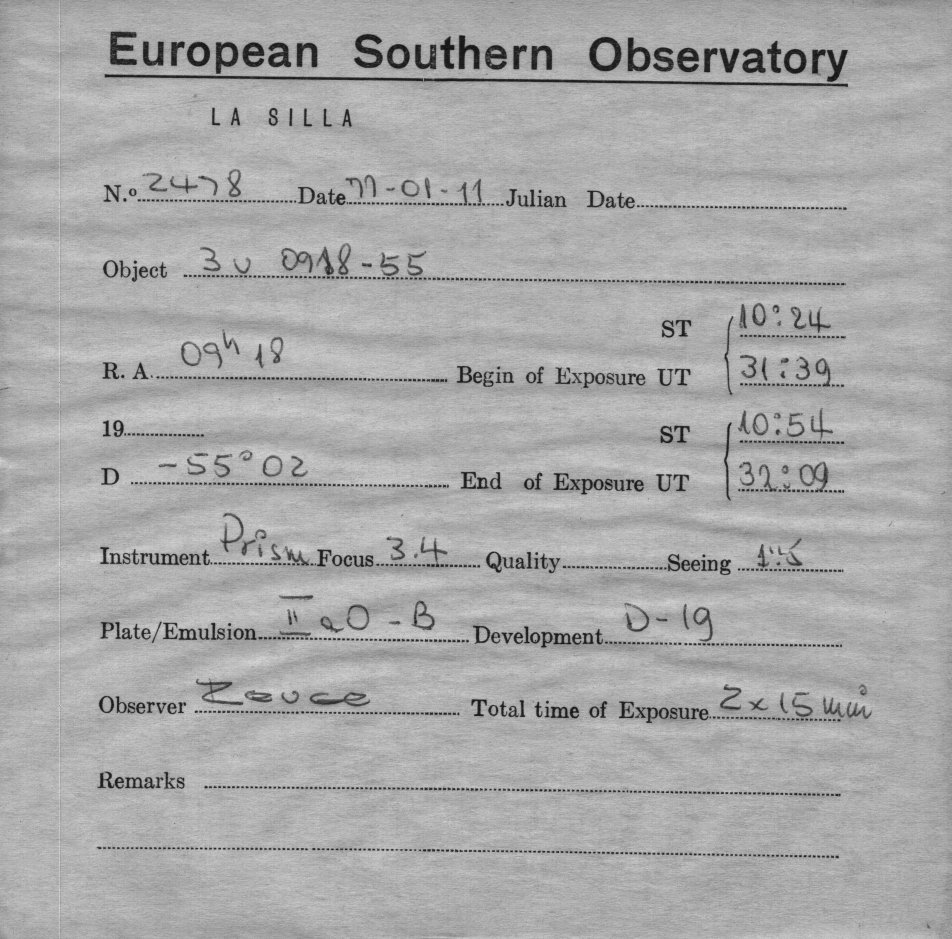 European Southern Observatory
LA SILLA
N.º 2478 Date 77-01-11 Julian Date
Object 3U 0918-55
ST 10:24
R. A. 09h 18 Begin of Exposure UT 31:39
19 ST 10:54
D -55° 02 End of Exposure UT 32:09
Instrument Prism Focus 3.4 Quality Seeing 1".5
Plate/Emulsion II a O - B Development D-19
Observer Total time of Exposure 2x15 min
Remarks